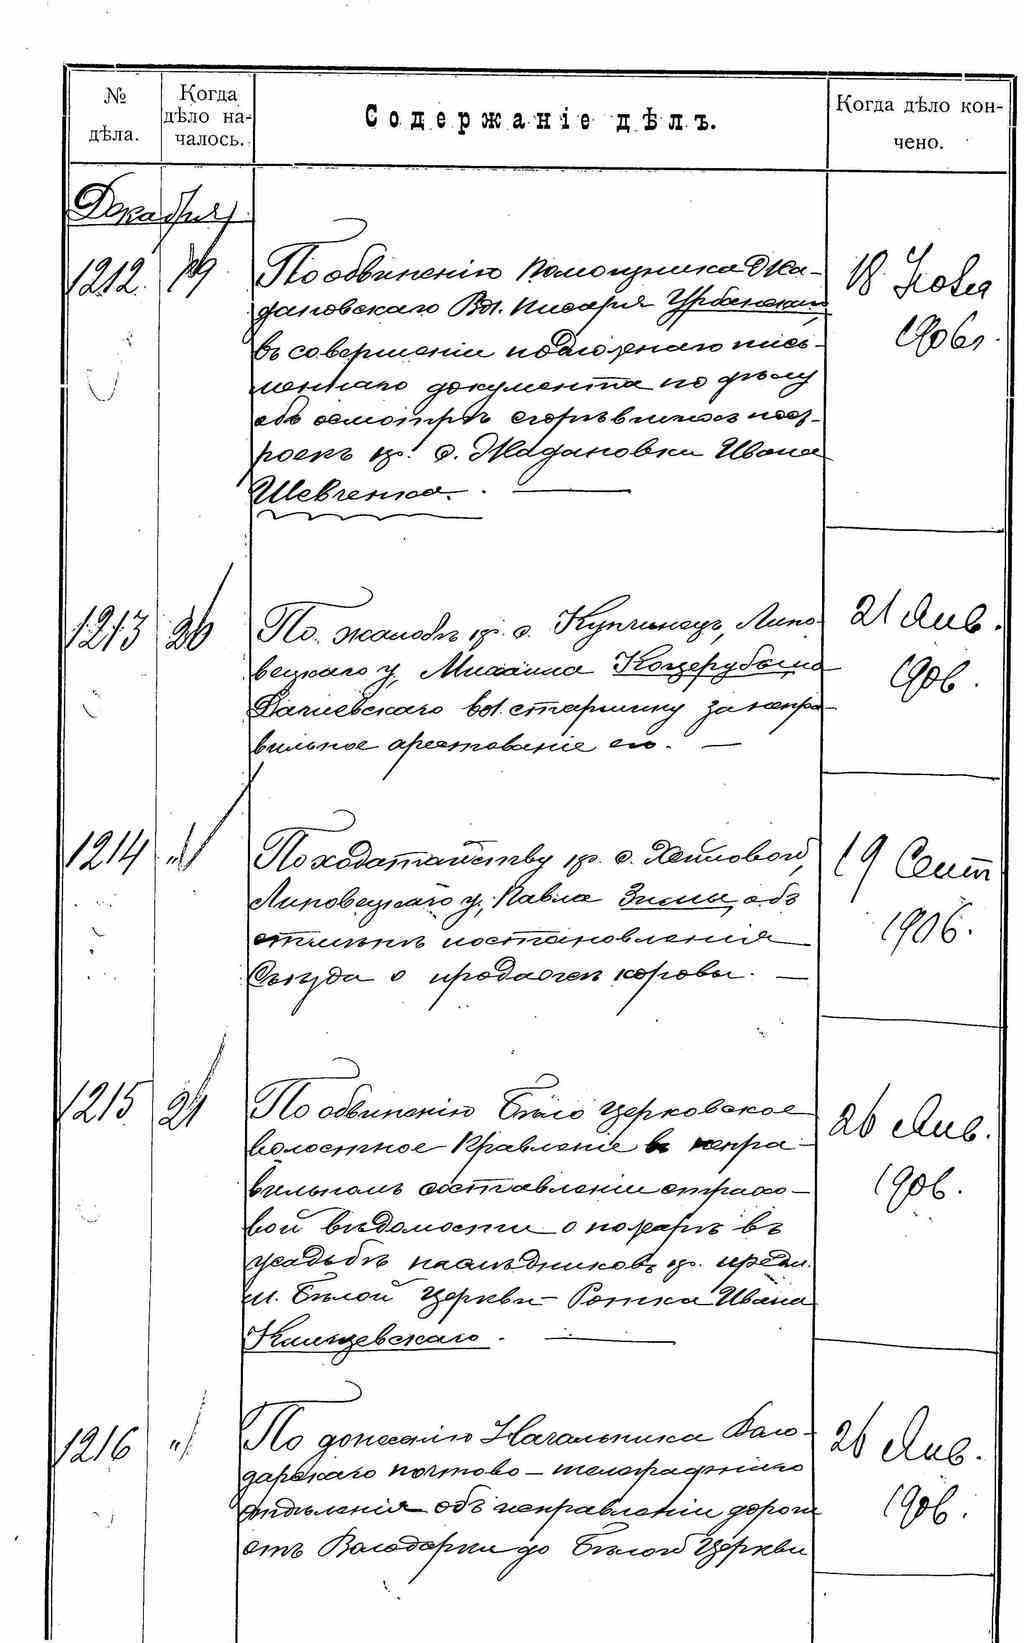 № дѣла.
Когда дѣло на-
чалось.
Содержаніе дѣлъ.
Когда дѣло кон-
чено.
Декабря
1212. 19 По обвиненію помощника Жа- 18 Ноября
дановскаго Вол. писаря Урбанскаго 1906 г.
въ совершеніи подложнаго пись-
меннаго документа по дѣлу
объ осмотрѣ сгорѣвшихъ пост-
роекъ кр. с. Жадановки Ивана
Шевченка.
1213 20 По жалобѣ кр. с. Купчинец, Липо- 21 Янв.
вецкаго у, Михаила Коцерубы на 1906.
вол. старшину за непра-
вильное арестованіе его.
1214 "/ По ходатайству кр. с. Хейловой, 19 Сент
Липовецкаго у, Павла Зимы, объ 1906.
отмѣнѣ постановленія
Съѣзда о продажѣ коровы.
1215 21 По обвиненію Бѣлоцерковское 26 Янв.
волостное Правленіе въ непра- 1906.
вильномъ составленіи страхо-
вой вѣдомости о пожарѣ въ
усадьбѣ наслѣдниковъ кр. предм.
м. Бѣлой Церкви- Ротка Ивана
1216 "/ По донесенію Начальника Воло- 26 Янв.
дарскаго почтово-телеграфнаго 1906.
отдѣленія объ исправленіи дороги
отъ Володарки до Бѣлой Церкви